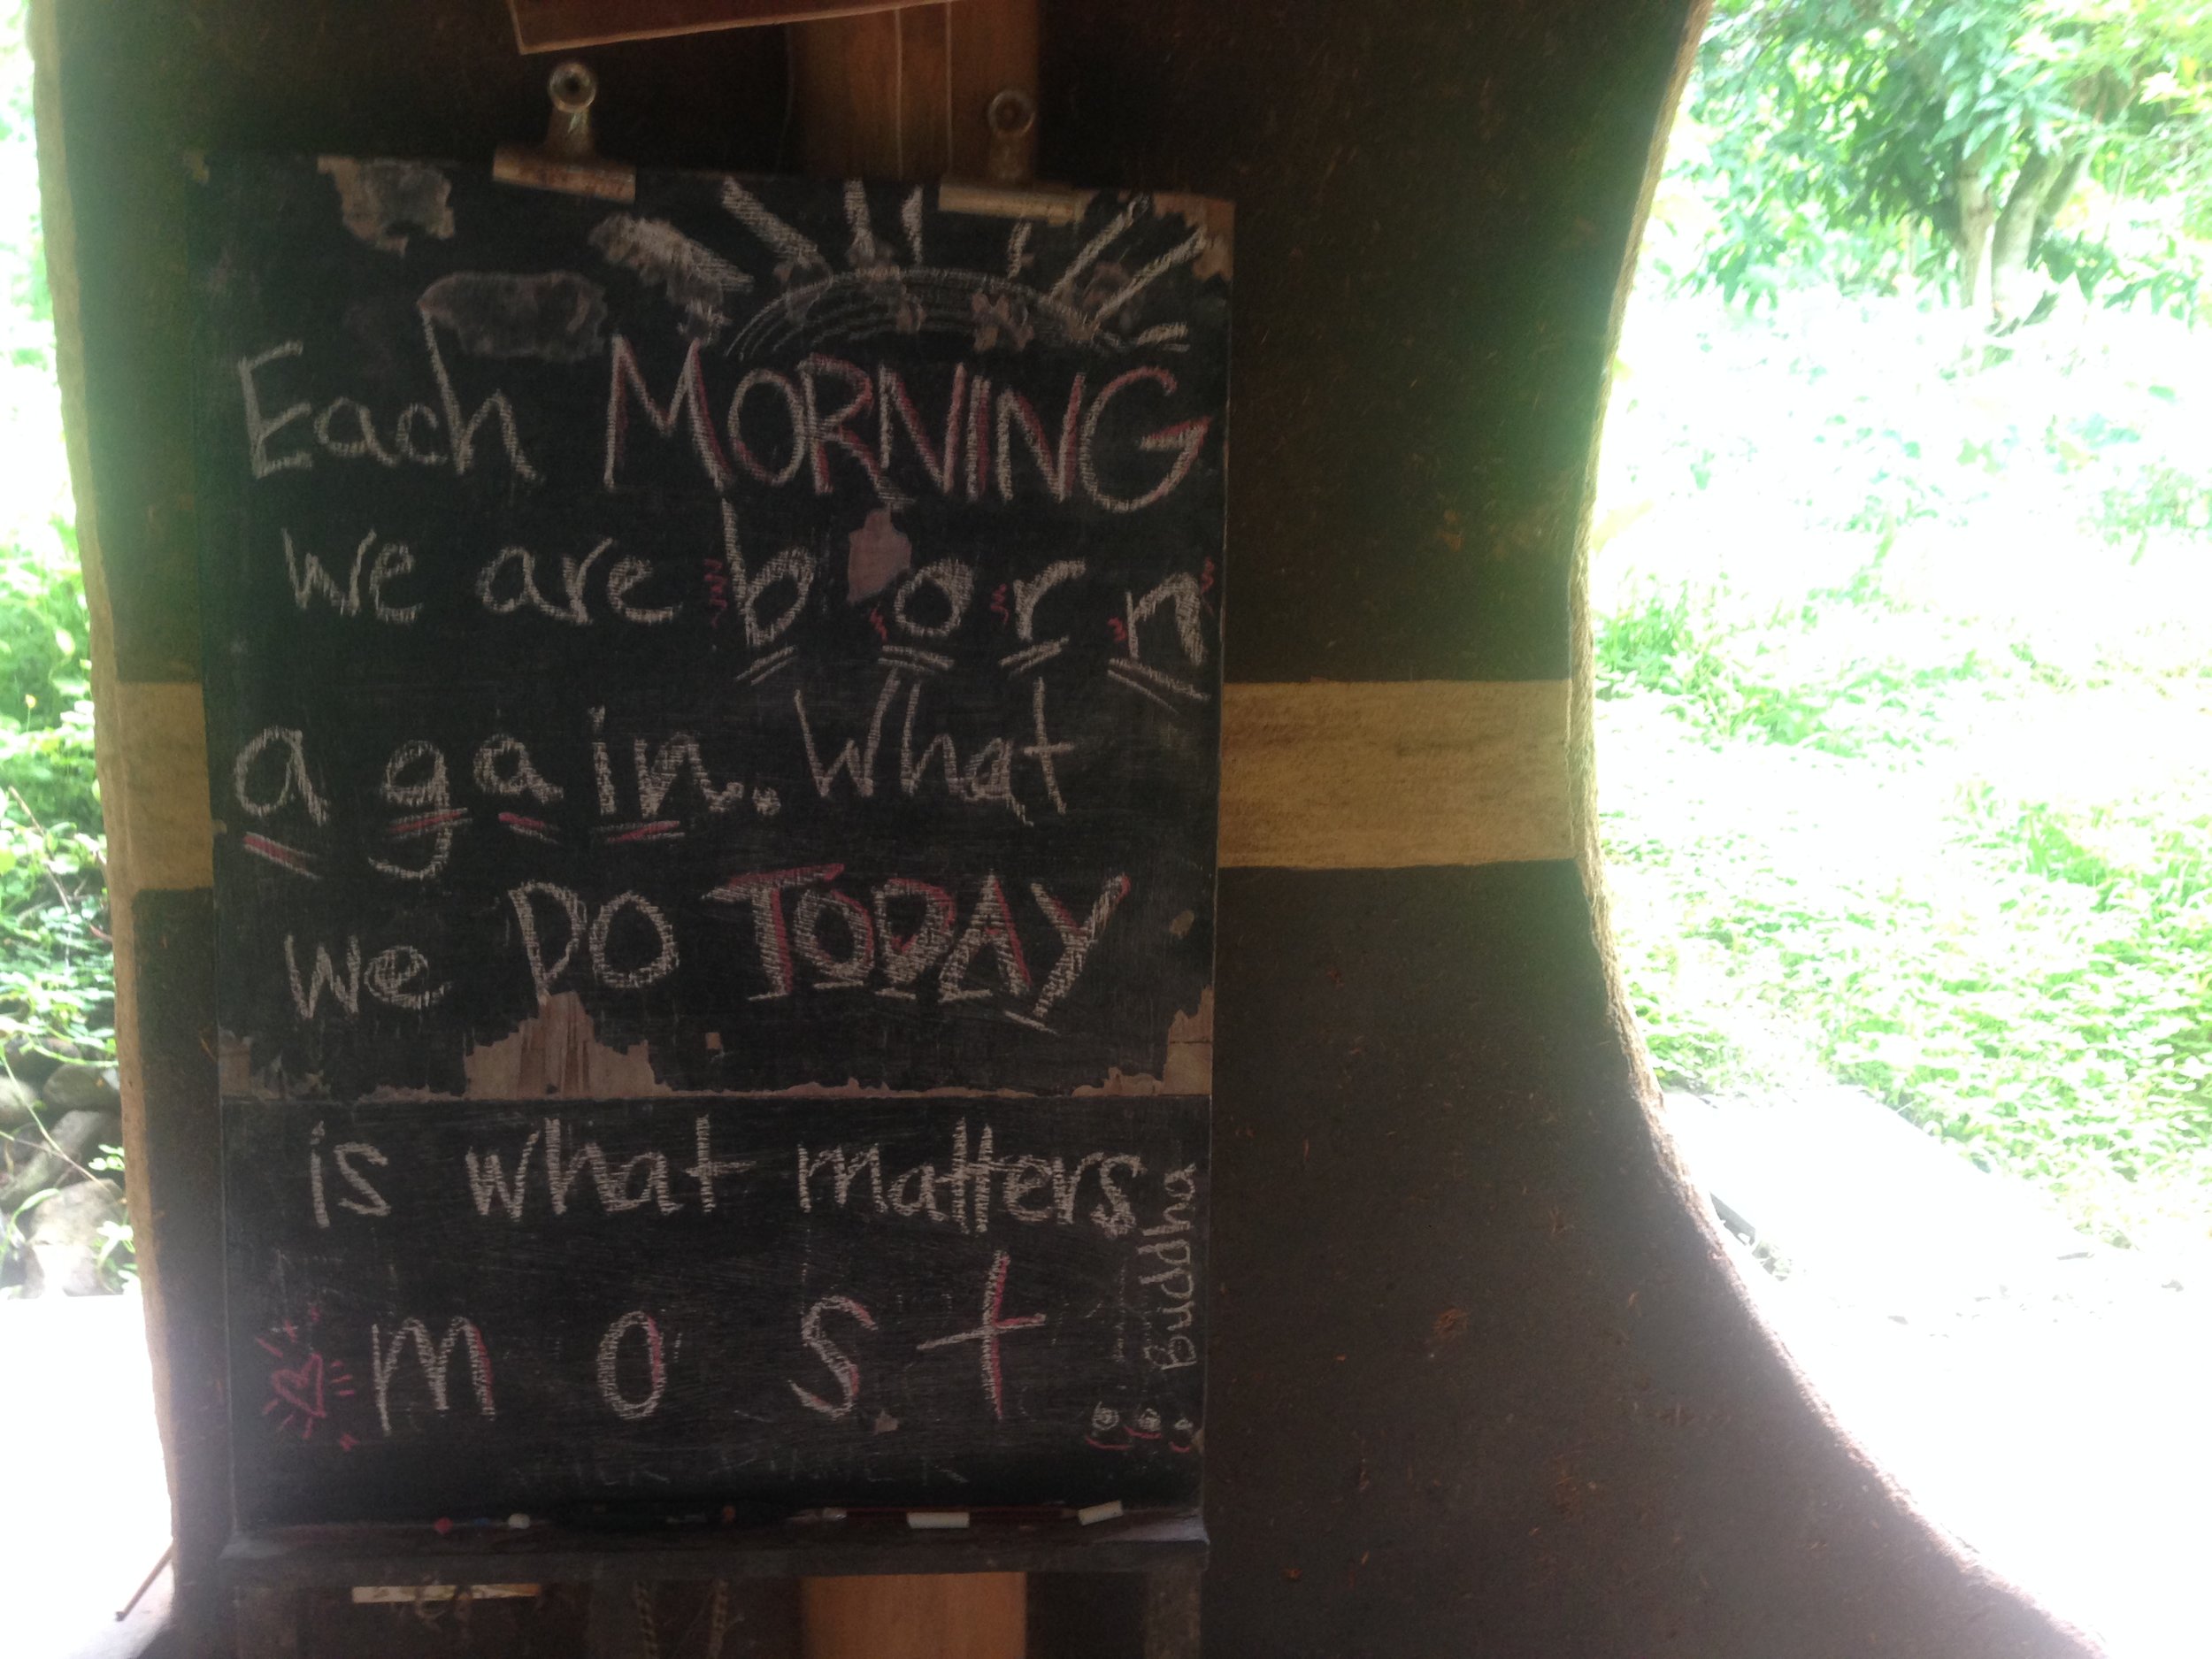 Each MORNING
we are born
again. What
we DO TODAY
is what matters
most
Buddha